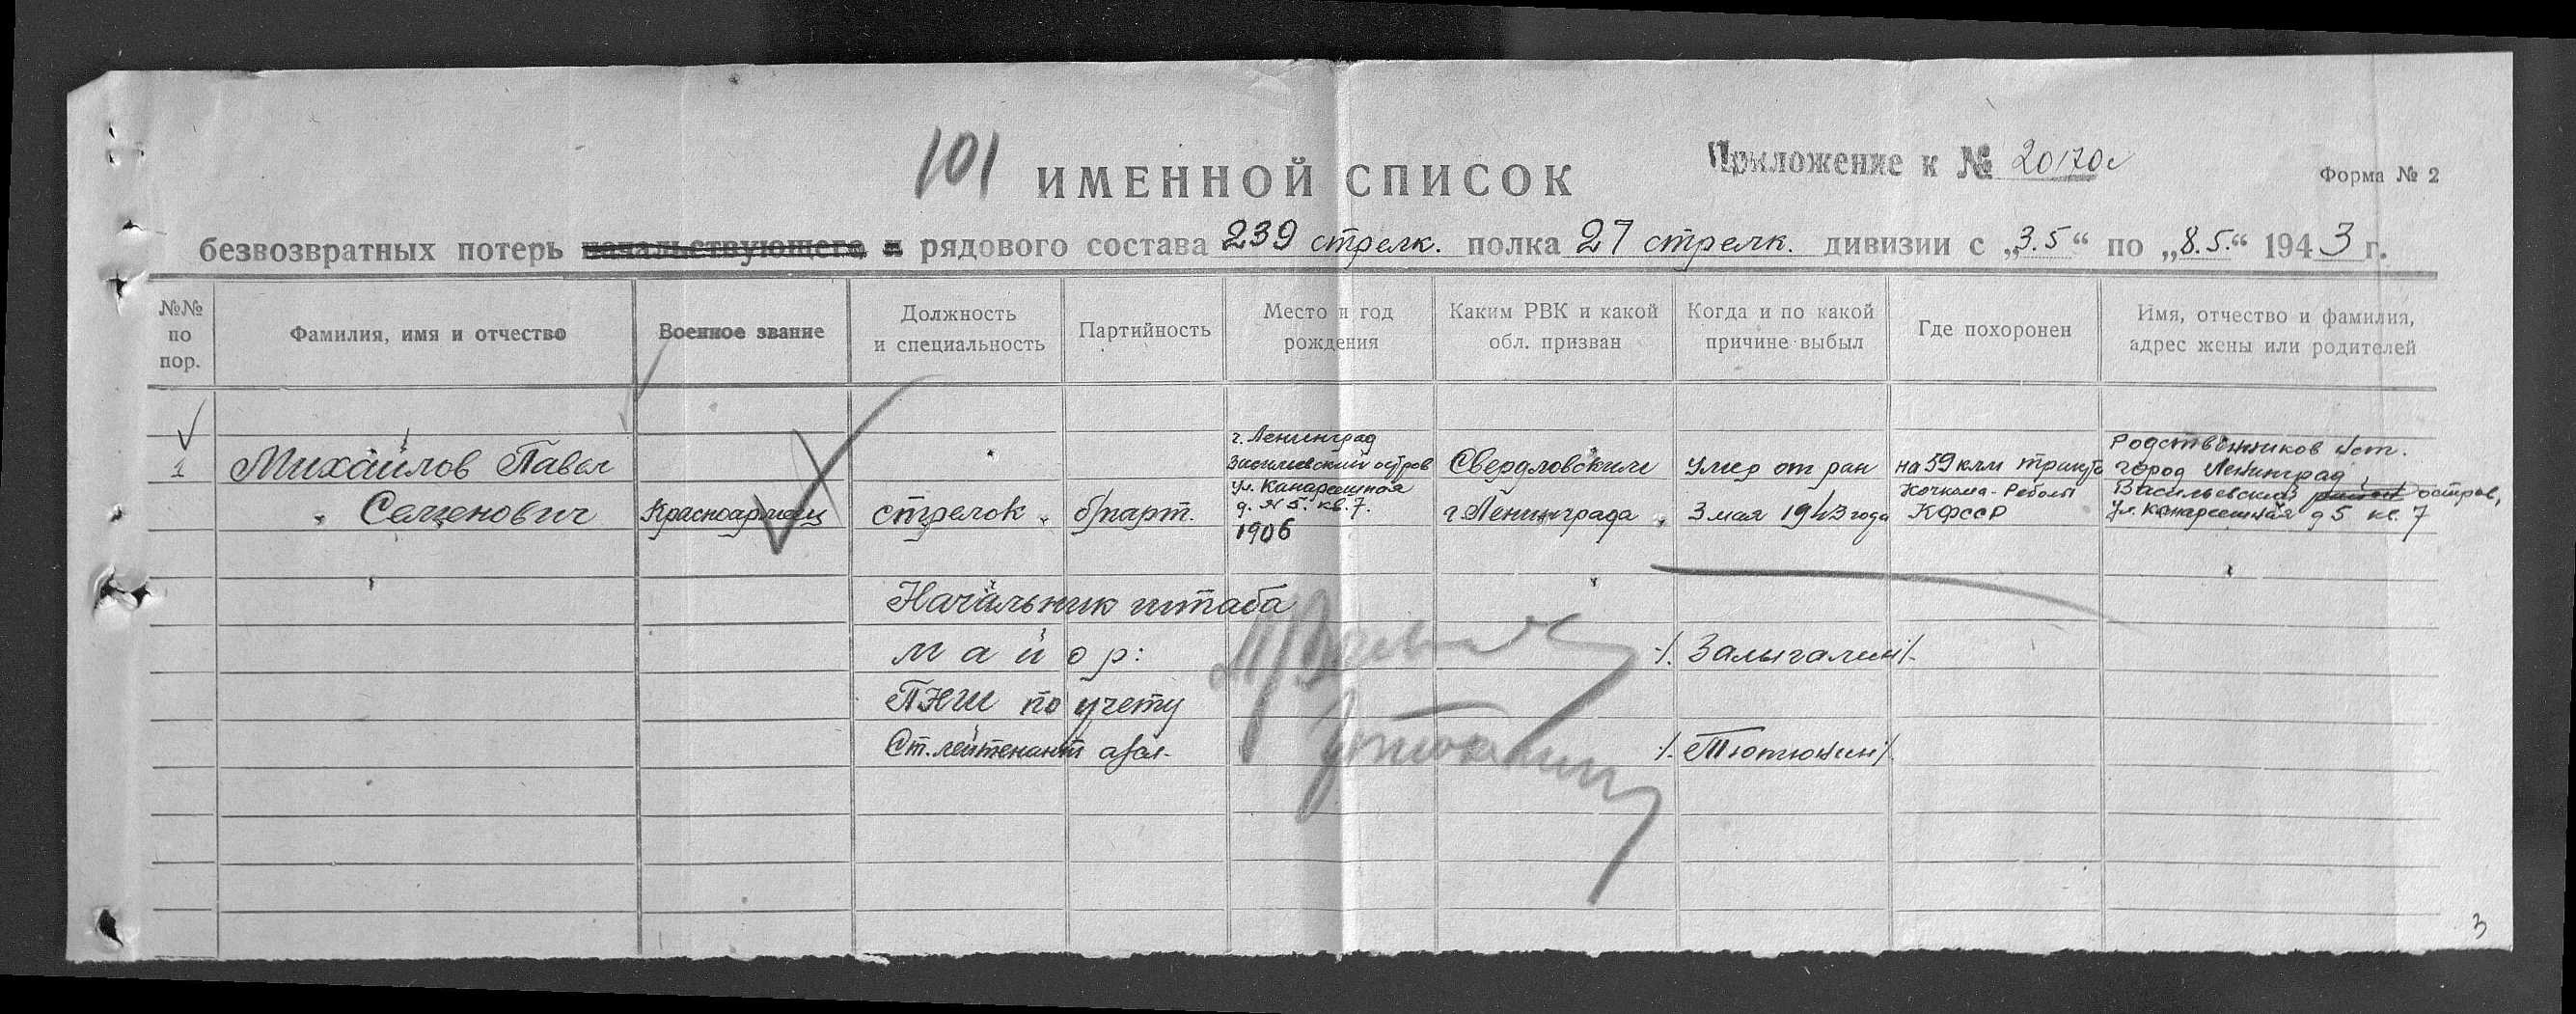 101
ИМЕННОЙ СПИСОК
Приложение к № 20170с
Форма № 2
безвозвратных потерь начальствующего и рядового состава 239 стрелк. полка 27 стрелк. дивизии с „3.5“ по „8.5.“ 1943 г.
№№ по пор.
Фамилия, имя и отчество
Военное звание
Должность и специальность
Партийность
Место и год рождения
Каким РВК и какой обл. призван
Когда и по какой причине выбыл
Где похоронен
Имя, отчество и фамилия, адрес жены или родителей
1
Михайлов Павел
Семенович
Красноармеец
стрелок
б/парт.
г. Ленинград
Васильевский остров
ул. Канареешная
д. № 5. кв. 7.
1906
Свердловским
г. Ленинграда
Умер от ран
3 мая 1943 года
на 59 клм тракта
Кочкома-Реболы
КФССР
Родственников нет.
город Ленинград
Васильевский район остров,
ул. Канареешная д 5 кв. 7
Начальник штаба
майор:
/. Залыгалин/.
ПНШ по учету
Ст. лейтенант адм.
/. Тютюнин/.
3